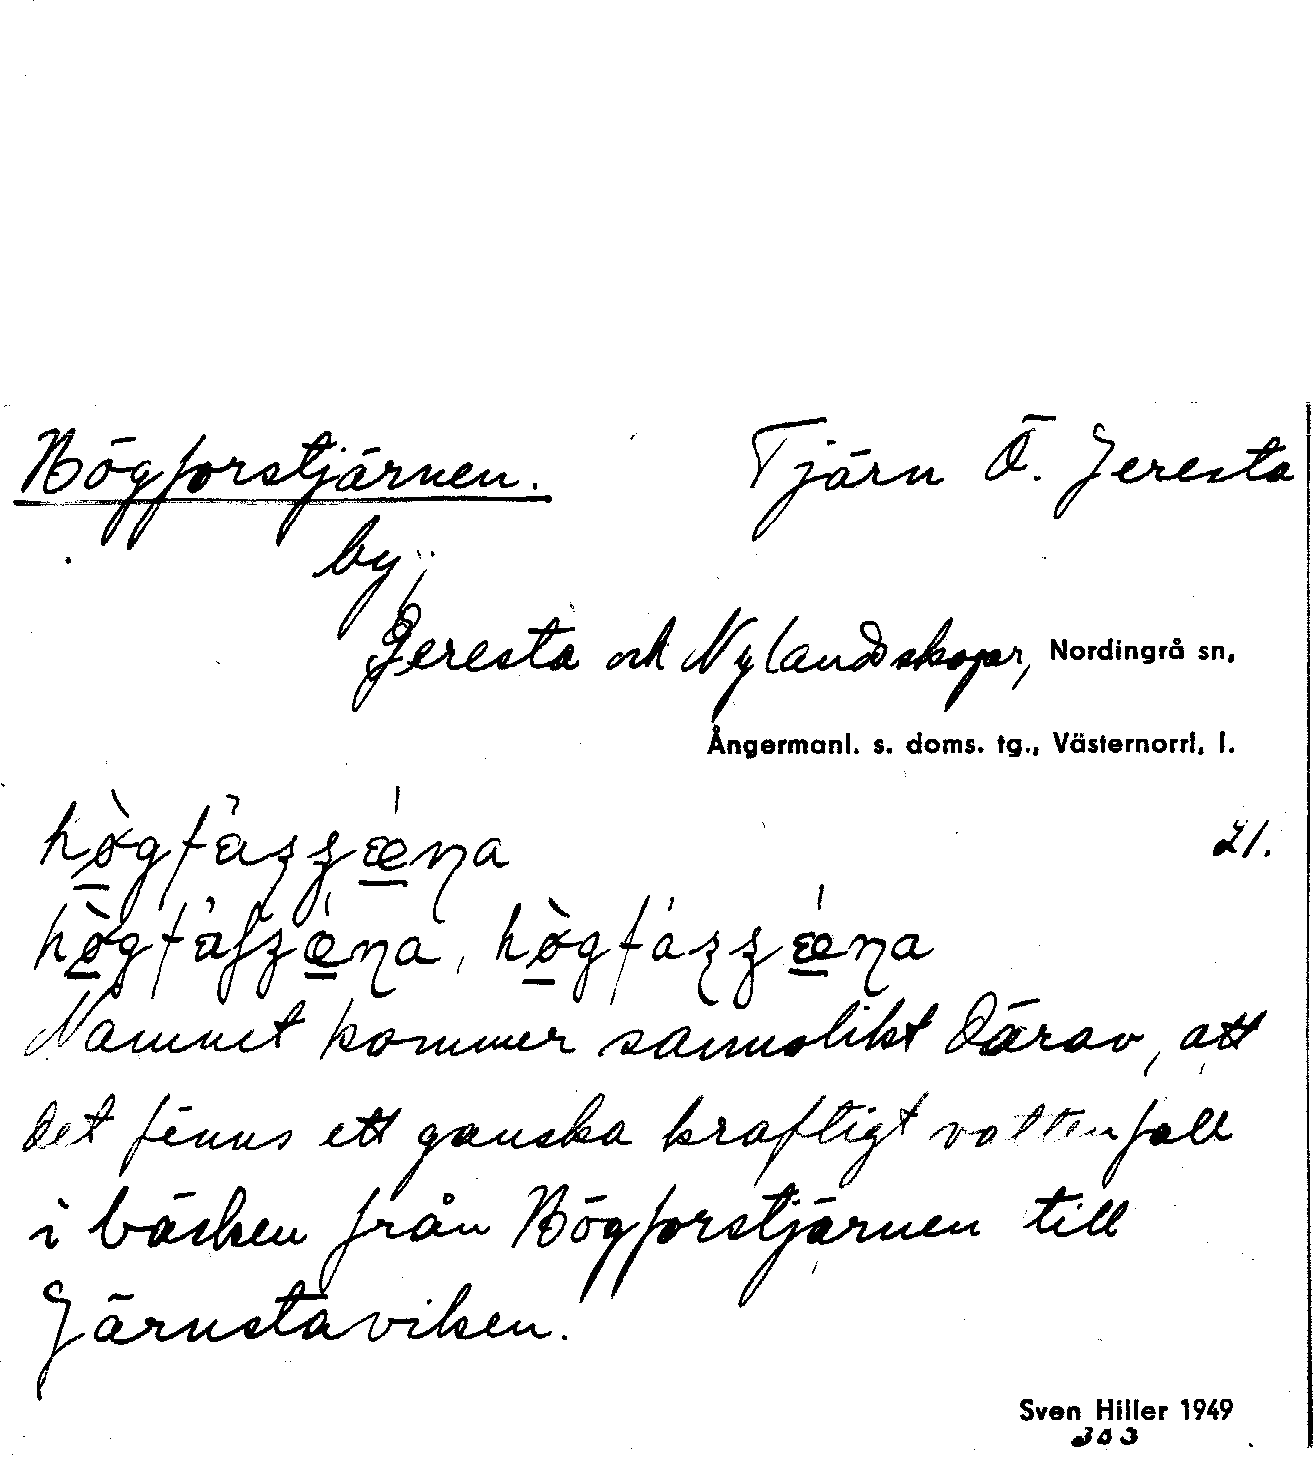 Högforstjärnen. Tjärn Ö. Jeresta
by
Jeresta och Nylandskojar, Nordingrå sn,
Ångermanl. s. doms. tg., Västernorrl. l.
21.
Namnet kommer sannolikt därav, att
det finns ett ganska kraftigt vattenfall
i bäcken från Högforstjärnen till
Järnstaviken.
Sven Hiller 1949
303